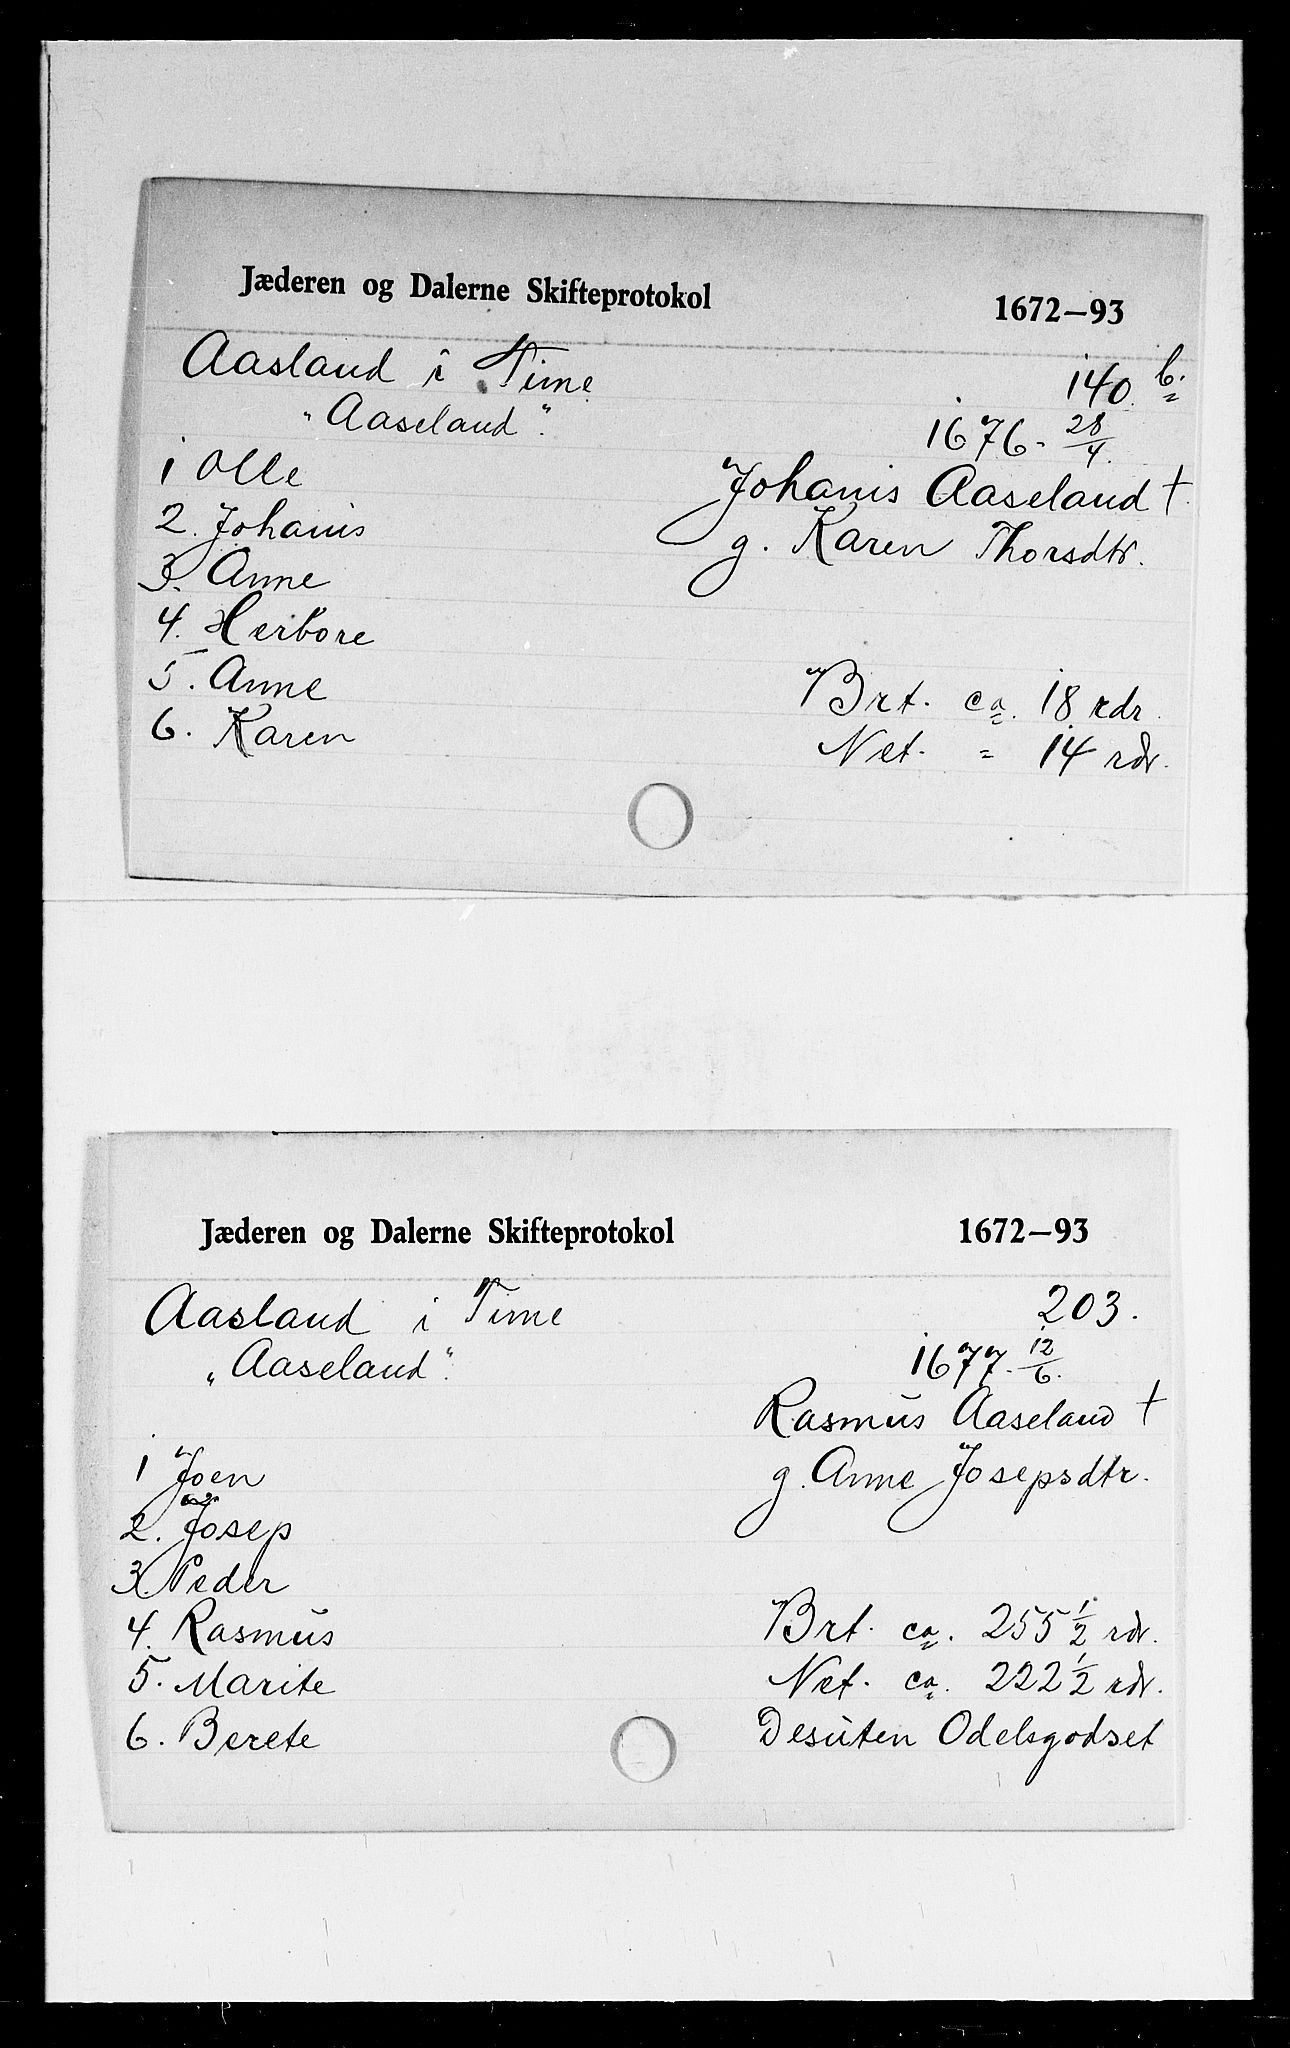 Jæderen og Dalerne Skifteprotokol 1672–93
Aasland i Time 140 b.
"Aaseland". 1676. 28/4.
1 Olle
Johanis Aaseland †
2. Johanis
g. Karen Thorsdtr.
3. Anne
4. Herbore
5. Anne
Brt. ca. 18 rdr.
6. Karen
Net. " 14 rdr.
Jæderen og Dalerne Skifteprotokol 1672–93
Aasland i Time 203.
"Aaseland". 1677. 12/6.
Rasmus Aaseland †
1 Joen
g. Anne Josepsdtr.
2. Josep
3. Peder
4. Rasmus
Brt. ca. 255 1/2 rdr.
5. Marite
Net. ca. 222 1/2 rdr.
6. Berete
Desuten Odelsgodset